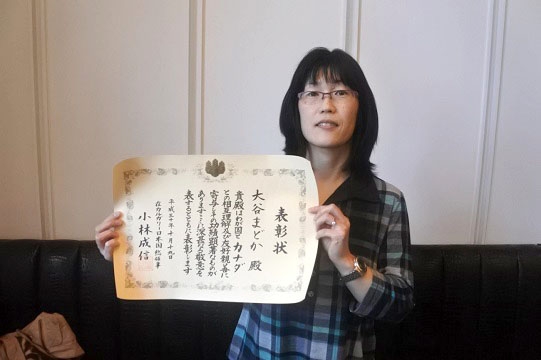 表彰状
大谷まどか 殿
貴殿はわが国とカナダ
との相互理解及び友好親善に
寄与しその功績顕著なものが
ありますここに深甚なる敬意を
表するとともに表彰します
平成三十年十月十九日
在カルガリー日本国総領事
小林成信